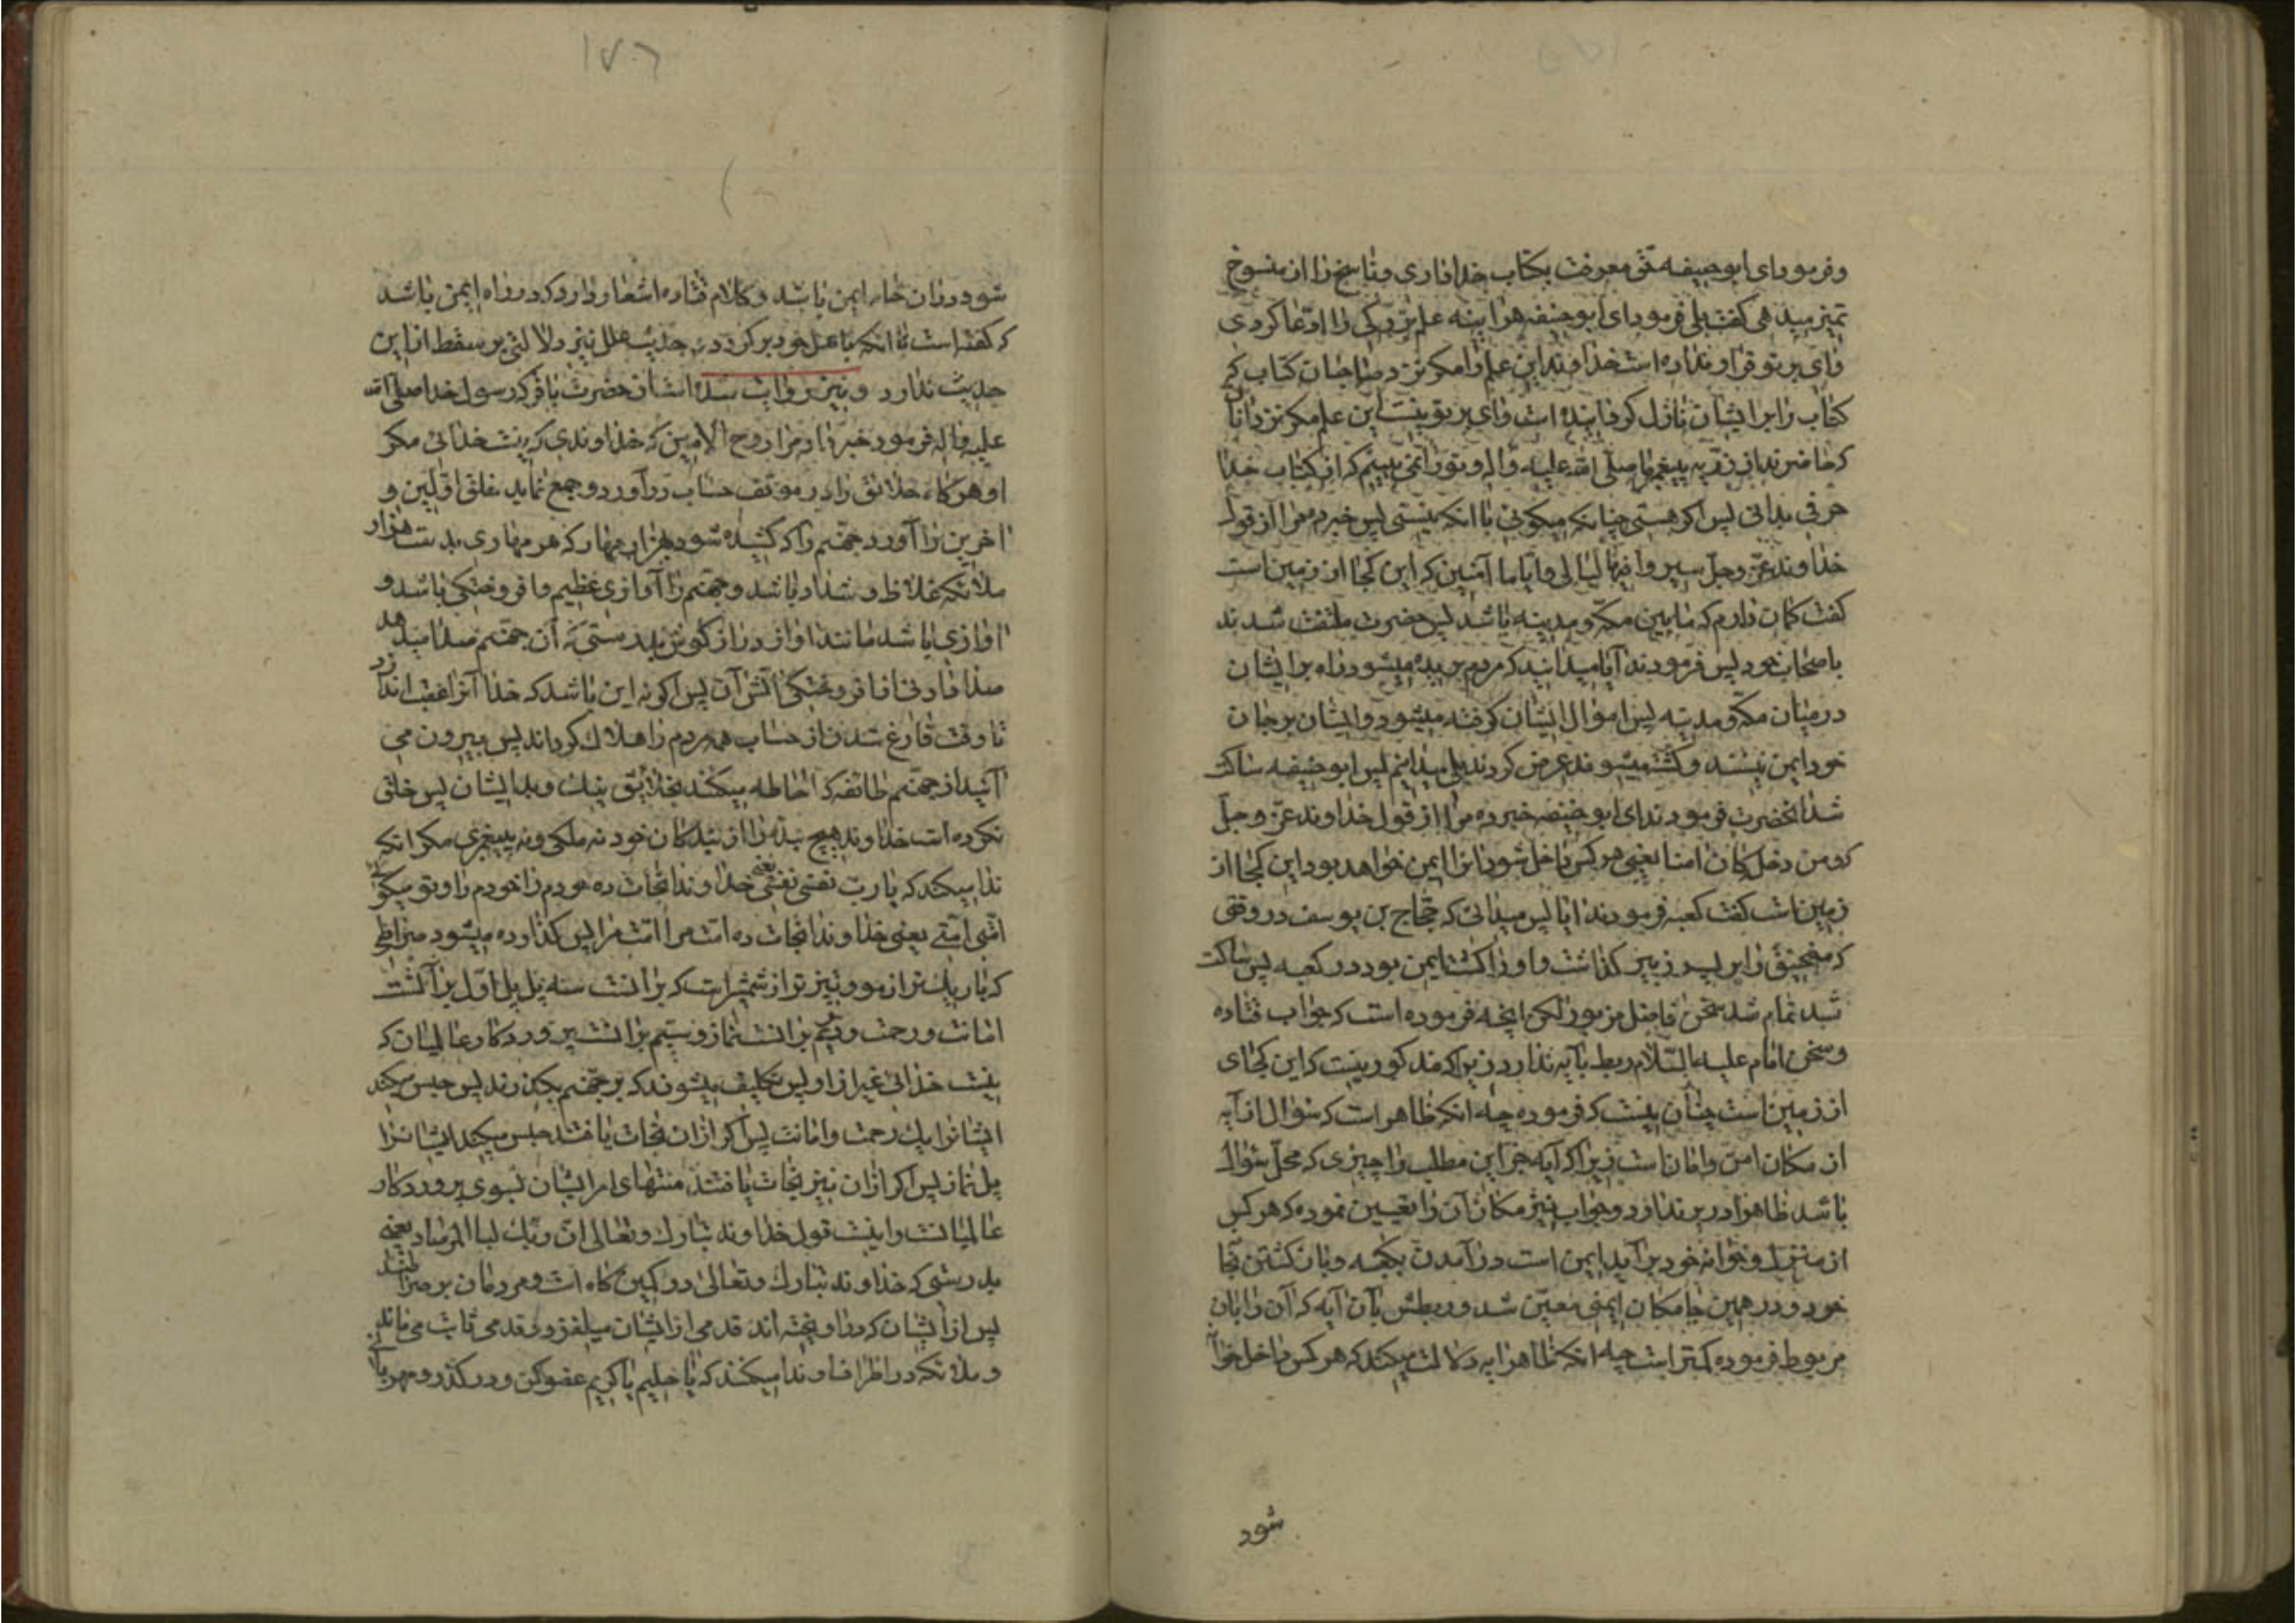 وفرمود ای ابوحنیفه حق معرفت بکتاب خدا داری وناسخ را از منسوخ
تمیز میدهی گفت بلی فرمود ای ابوحنیفه هراینه علم بزرگی را ادعا کردی
وای بر تو قرار نداده است خداوند این علم را مکر نزد صاحبان کتاب که
کتاب را بر ایشان نازل کردانیده است وای بر تو نیست این علم مکر نزد انان
که حاضرند از ذریه پیغمبر ما صلی الله علیه واله وتو را نمی بینم که از کتاب خدا
حرفی بدانی پس اکر هستی چنانکه میکوئی با انکه نیستی پس خبر ده مرا از قول
خداوند عز وجل سیروا فیها لیالی وایاما آمنین که این کجا از زمین است
کفت کمان دارم که مابین مکه ومدینه باشد پس حضرت ملتفت شدند
باصحاب خود پس فرمودند آیا میدانید که مردم بریده میشود راه بر ایشان
درمیان مکه ومدینه پس اموال ایشان کرفته میشود وایشان برجان
خود ایمن نیستند وکشته میشوند عرض کردند بلی میدانیم پس ابوحنیفه ساکت
شد انحضرت فرمودند ای ابوحنیفه خبر ده مرا از قول خداوند عز وجل
که ومن دخله کان امنا یعنی هر کس داخل شود انرا ایمن خواهد بود این کجا از
زمین است کفت کعبه فرمودند ایا پس میدانی که حجاج بن یوسف در وقتی
که منجنیق را بر پسر زبیر کذاشت واو را کشت ایمن بود در کعبه پس ساکت
شد تمام شد سخن فاضل مزبور لکن انچه فرموده است که جواب قتاده
وسخن امام علیه السلام ربط بآیه ندارد زیرا که مذکور نیست که این کجای
از زمین است چنان نیست که فرموده چه انکه ظاهر است که سؤال از آیه
از مکان امن وامان است زیرا که آیه جز این مطلب را چیزی که محل سؤال
باشد ظاهرا در بر ندارد وجواب نیز مکان آن را تعیین نموده که هر کس
از منزل وخوانه خود برآید ایمن است در آمدن بکعبه وبازکشتن بجا
خود ودر همین جا مکان ایمنی معین شد وربطش بآن آیه که آن را بان
مربوط فرموده کمتر است چه انکه ظاهرا یه دلالت میکند که هر کس داخل خوا
شود
۱۷۰۶
شود در ان خانه ایمن باشد وکلام قتاده اشعار دارد که در راه ایمن باشد
که کفته است تا انکه باهل خود برکردد وحدیث علل نیز دلالتی بر سقط از این
حدیث ندارد ونیز روایت شده است از حضرت باقر که رسول خدا صلی الله
علیه واله فرمود خبر داد مرا روح الامین که خداوندی که نیست خدائی مکر
او هرکاه خلائق را در موقف حساب درآورد وجمع نماید خلق اولین و
اخرین را آورد جهنم را که کشیده شود بهزار مهار که هر مهاری بدست هزار
ملائکه غلاظ وشداد باشد وجهنم را آوازی عظیم وافروختکی باشد و
اوازی باشد مانند اواز دراز کوش بدرستی که آن جهنم صدا میدهد
افروختکی آتش آن پس اکر نه این باشد که خدا آنرا عقب اندازد
تا وقت فارغ شدن از حساب همه مردم را هلاک کرداند پس بیرون می
آید از جهنم طائفه که احاطه میکند بخلایق نیک وبد ایشان پس خلق
نکرده است خداوند هیچ بنده را از بندکان خود نه ملکی ونه پیغمبری مکر انکه
ندا میکند که یا رب نفسی نفسی یعنی خداوندا نجات ده خودم را خودم را وتو میکوئی
امتی امتی یعنی خداوندا نجات ده امت مرا امت مرا پس کذارده میشود صراطی
که باریک تر از مو وتیز تر از شمشیر است که بر انست سه پل پل اول بر آنست
امانت ورحمت ودویم بر انست نماز وسیم بر انست پرورد کار عالمیان که
نیست خدائی غیر از او پس تکلیف میشوند که بر جهنم بکذرند پس حبس میکند
ایشانرا پل رحمت وامانت پس اکر از ان نجات یافتند حبس میکند ایشانرا
پل نماز پس اکر از ان نیز نجات یافتند منتهای امر ایشان بسوی پروردکار
عالمیانست واینست قول خداوند تبارک وتعالی ان ربک لبالمرصاد یعنی
بدرستی که خداوند تبارک وتعالی در کمین کاه است ومردمان بر صراطند
پس از ایشان که در او یخته اند قدمی از ایشان میلغزد وقدمی ثابت می ماند
وملائکه در اطراف او ندا میکنند که یا حلیم یا کریم عفو کن ودر کذر ومهربانی